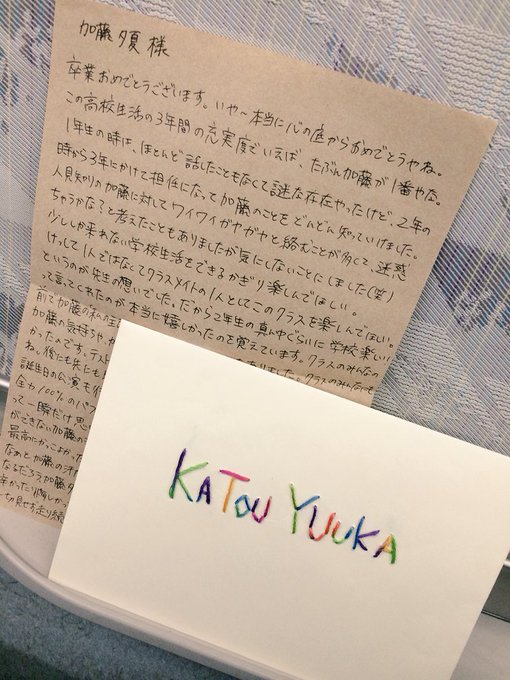 加藤 夕夏 様
卒業おめでとうございます。いや〜本当に心の底からおめでとうやね。
この高校生活の3年間の充実度でいえば、たぶん加藤が1番やな。
1年生の時は、ほとんど話したこともなくて謎な存在やったけど、2年の
時から3年にかけて担任になって加藤のことをどんどん知っていけました。
人見知りの加藤に対してワイワイガヤガヤと絡むことが多くて、迷惑
ちゃうかな?と考えたこともありましたが気にしないことにしました(笑)
少ししか来れない学校生活をできるかぎり楽しんでほしい。
けっして1人ではなくてクラスメイトの1人としてこのクラスを楽しんでほしい。
というのが先生の想いでした。だから2年生の真ん中ぐらいに「学校楽しい」
って言ってくれたのが本当に嬉しかったのを覚えています。クラスのみんなの
前で加藤の私の生
ありました。クラスのみんなにも
加藤の気持ちや、
かったのです。テスト
ね。後にも先にも
誕生日の公演も行
全力100%のパフ
って一瞬だけ思
ができない加藤の
最高にかっこよかった
なぁと加藤の
なるだろう。加藤
辛かったり悔しかっ
一切見せず走り続
KATOU YUUKA